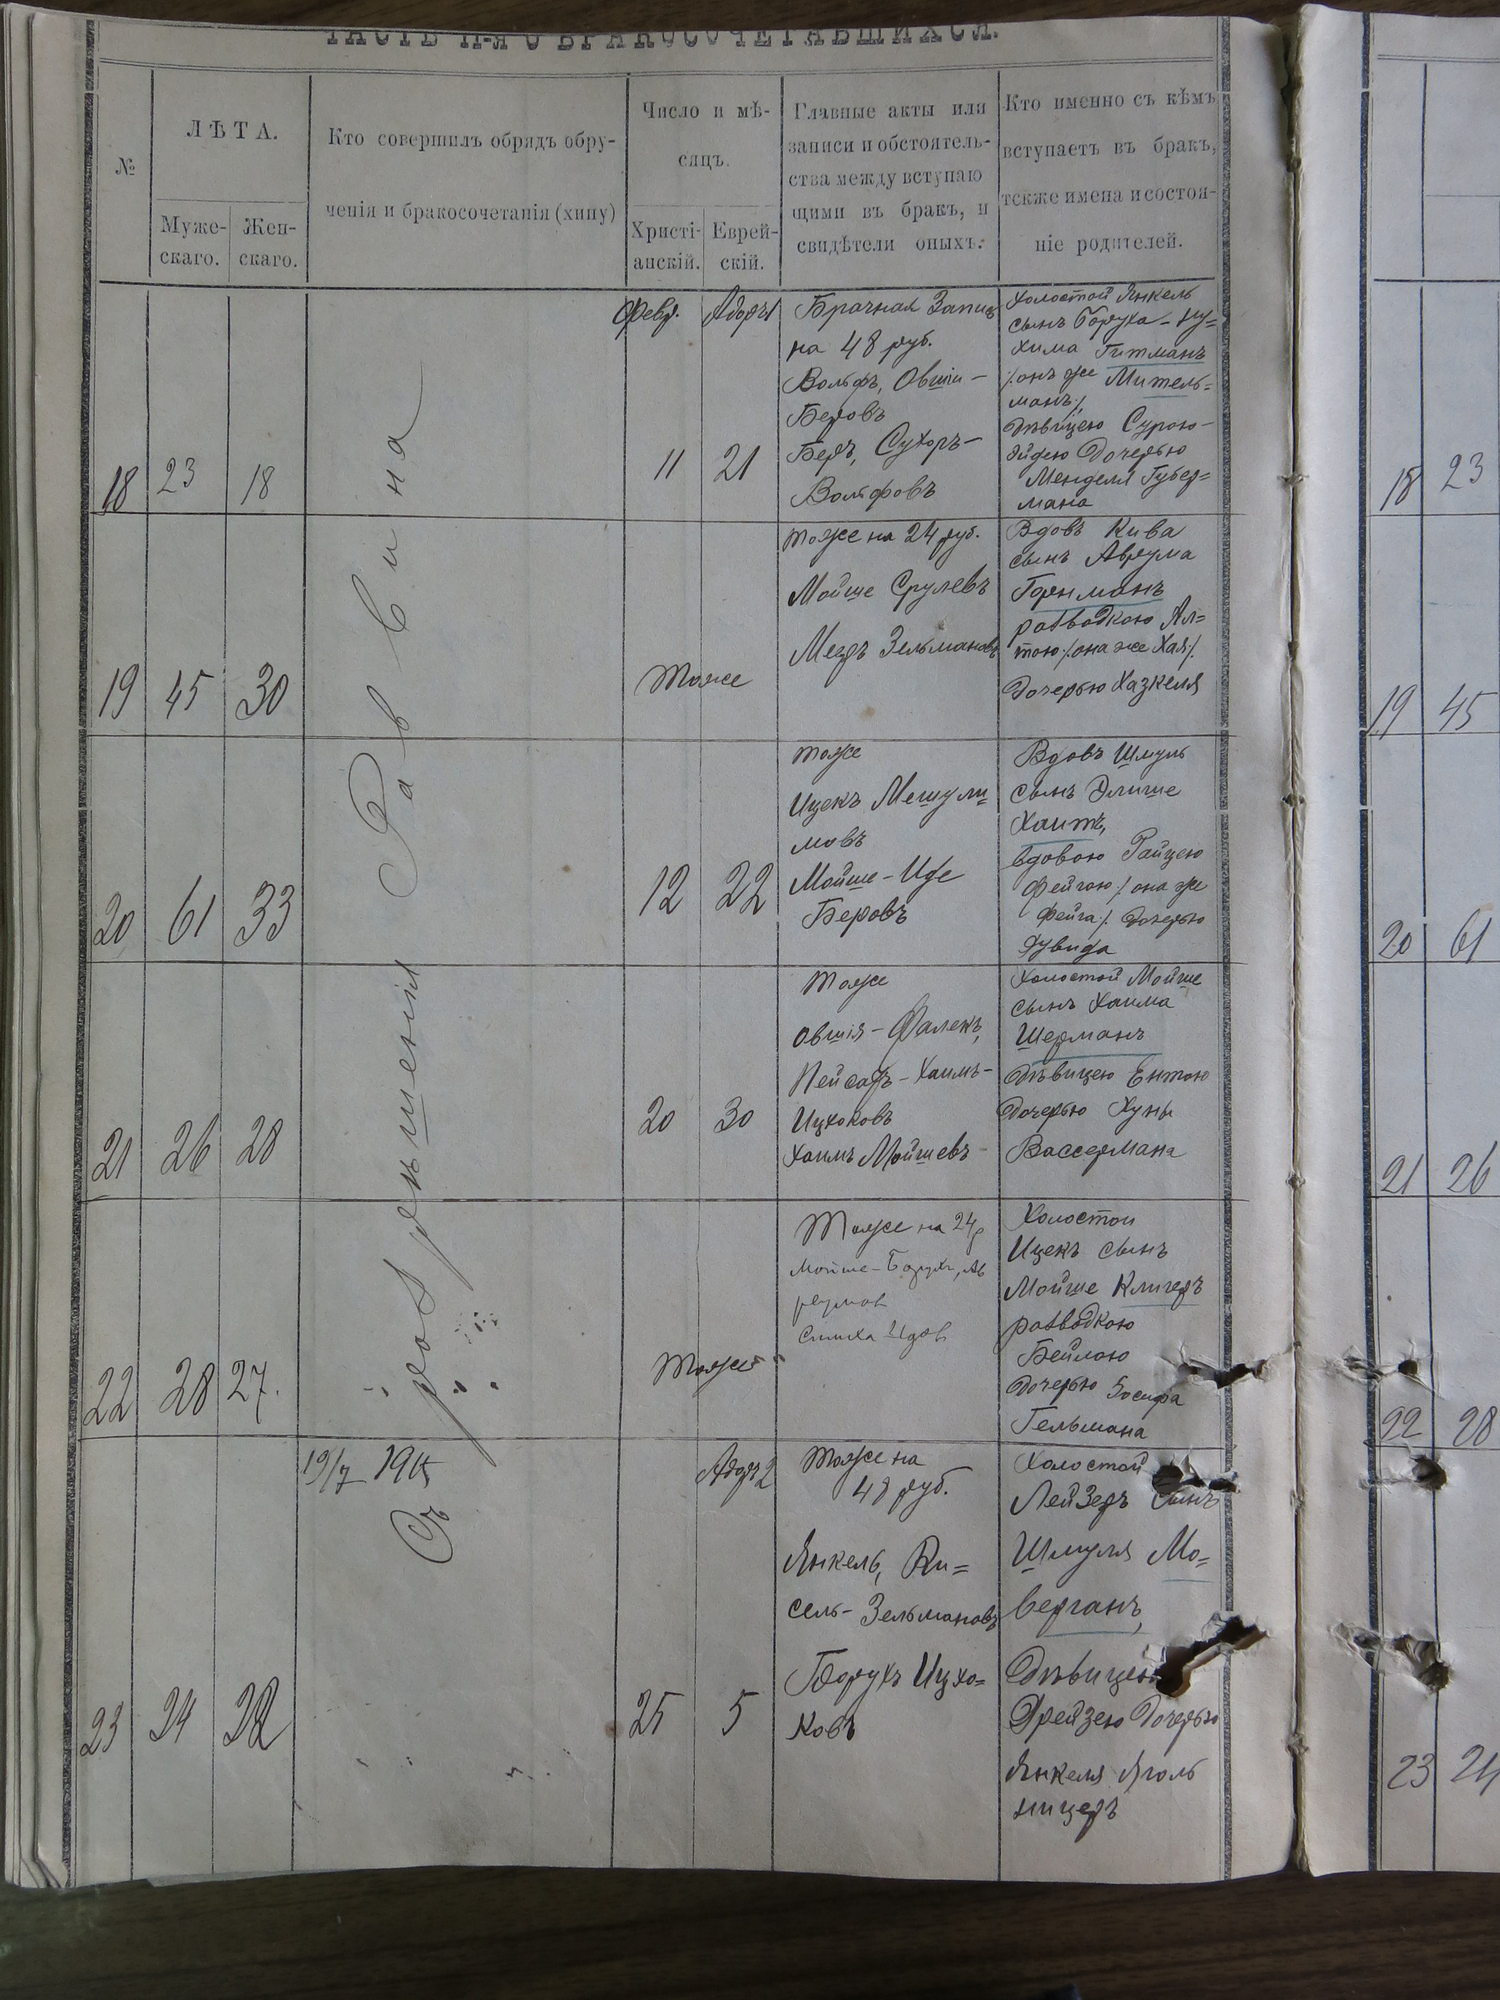 ЧАСТЬ II-Я О БРАКОСОЧЕТАВШИХСЯ.
№
ЛѢТА.
Муже-
скаго.
Жен-
скаго.
Кто совершилъ обрядъ обру-
ченія и бракосочетанія (хипу)
Число и мѣ-
сяцъ.
Христі-
анскій.
Еврей-
скій.
Главные акты или
записи и обстоятель-
ства между вступаю
щими въ бракъ, и
свидѣтели оныхъ.
Кто именно съ кѣмъ
вступаетъ въ бракъ,
также имена и состоя-
ніе родителей.
Съ разрешенія Раввина
18
23
18
Февр.
Адаръ 1
11
21
Брачная Запись
на 48 руб.
Вольфъ, Овшіи-
Беровъ
Беръ, Сухоръ-
Вольфовъ
Холостой Янкель
сынъ Боруха-Ну=
хима Гитманъ
/:онъ же Митель=
манъ:/
дѣвицею Сурою-
Эйдею дочерью
Менделя Губер=
мана
19
45
30
Тоже
Тоже на 24 руб.
Мойше Срулевъ
Меэръ Зельмановъ
Вдовъ Кива
сынъ Аврума
Горнманъ
разводкою Ал=
тою /:она же Хая:/
дочерью Хазкеля
20
61
33
12
22
Тоже
Ицекъ Мешули=
мовъ
Мойше-Иде
Беровъ
Вдовъ Шмуль
сынъ Элише
Хаитъ,
вдовою Райцею
Фейгою /:она же
Фейга:/ дочерью
Дувида
21
26
28
20
30
Тоже
Овшія-Фалекъ,
Пейсахъ-Хаимъ-
Ицхоковъ
Хаимъ Мойшевъ-
Холостой Мойше
сынъ Хаима
Шерманъ
дѣвицею Ентою
дочерью Хуны
Вассермана
22
28
27.
Тоже
Тоже на 24 р
Мойше-Борухъ, Ав
румов
Симха Идов
Холостой
Ицекъ сынъ
Мойше Клигеръ
разводкою
Бейлою
дочерью Іосифа
Гельмана
19/7 1915
23
24
22
Адаръ 2
25
5
Тоже на
48 руб.
Янкель, Ки=
сель-Зельмановъ
Борухъ Ицхо=
ковъ
Холостой
Лейзеръ сынъ
Шмуля Мо=
верганъ,
Дѣвицею
Дрейзею дочерью
Янкеля Яголь
ницеръ
18
23
19
45
20
61
21
26
22
28
23
24